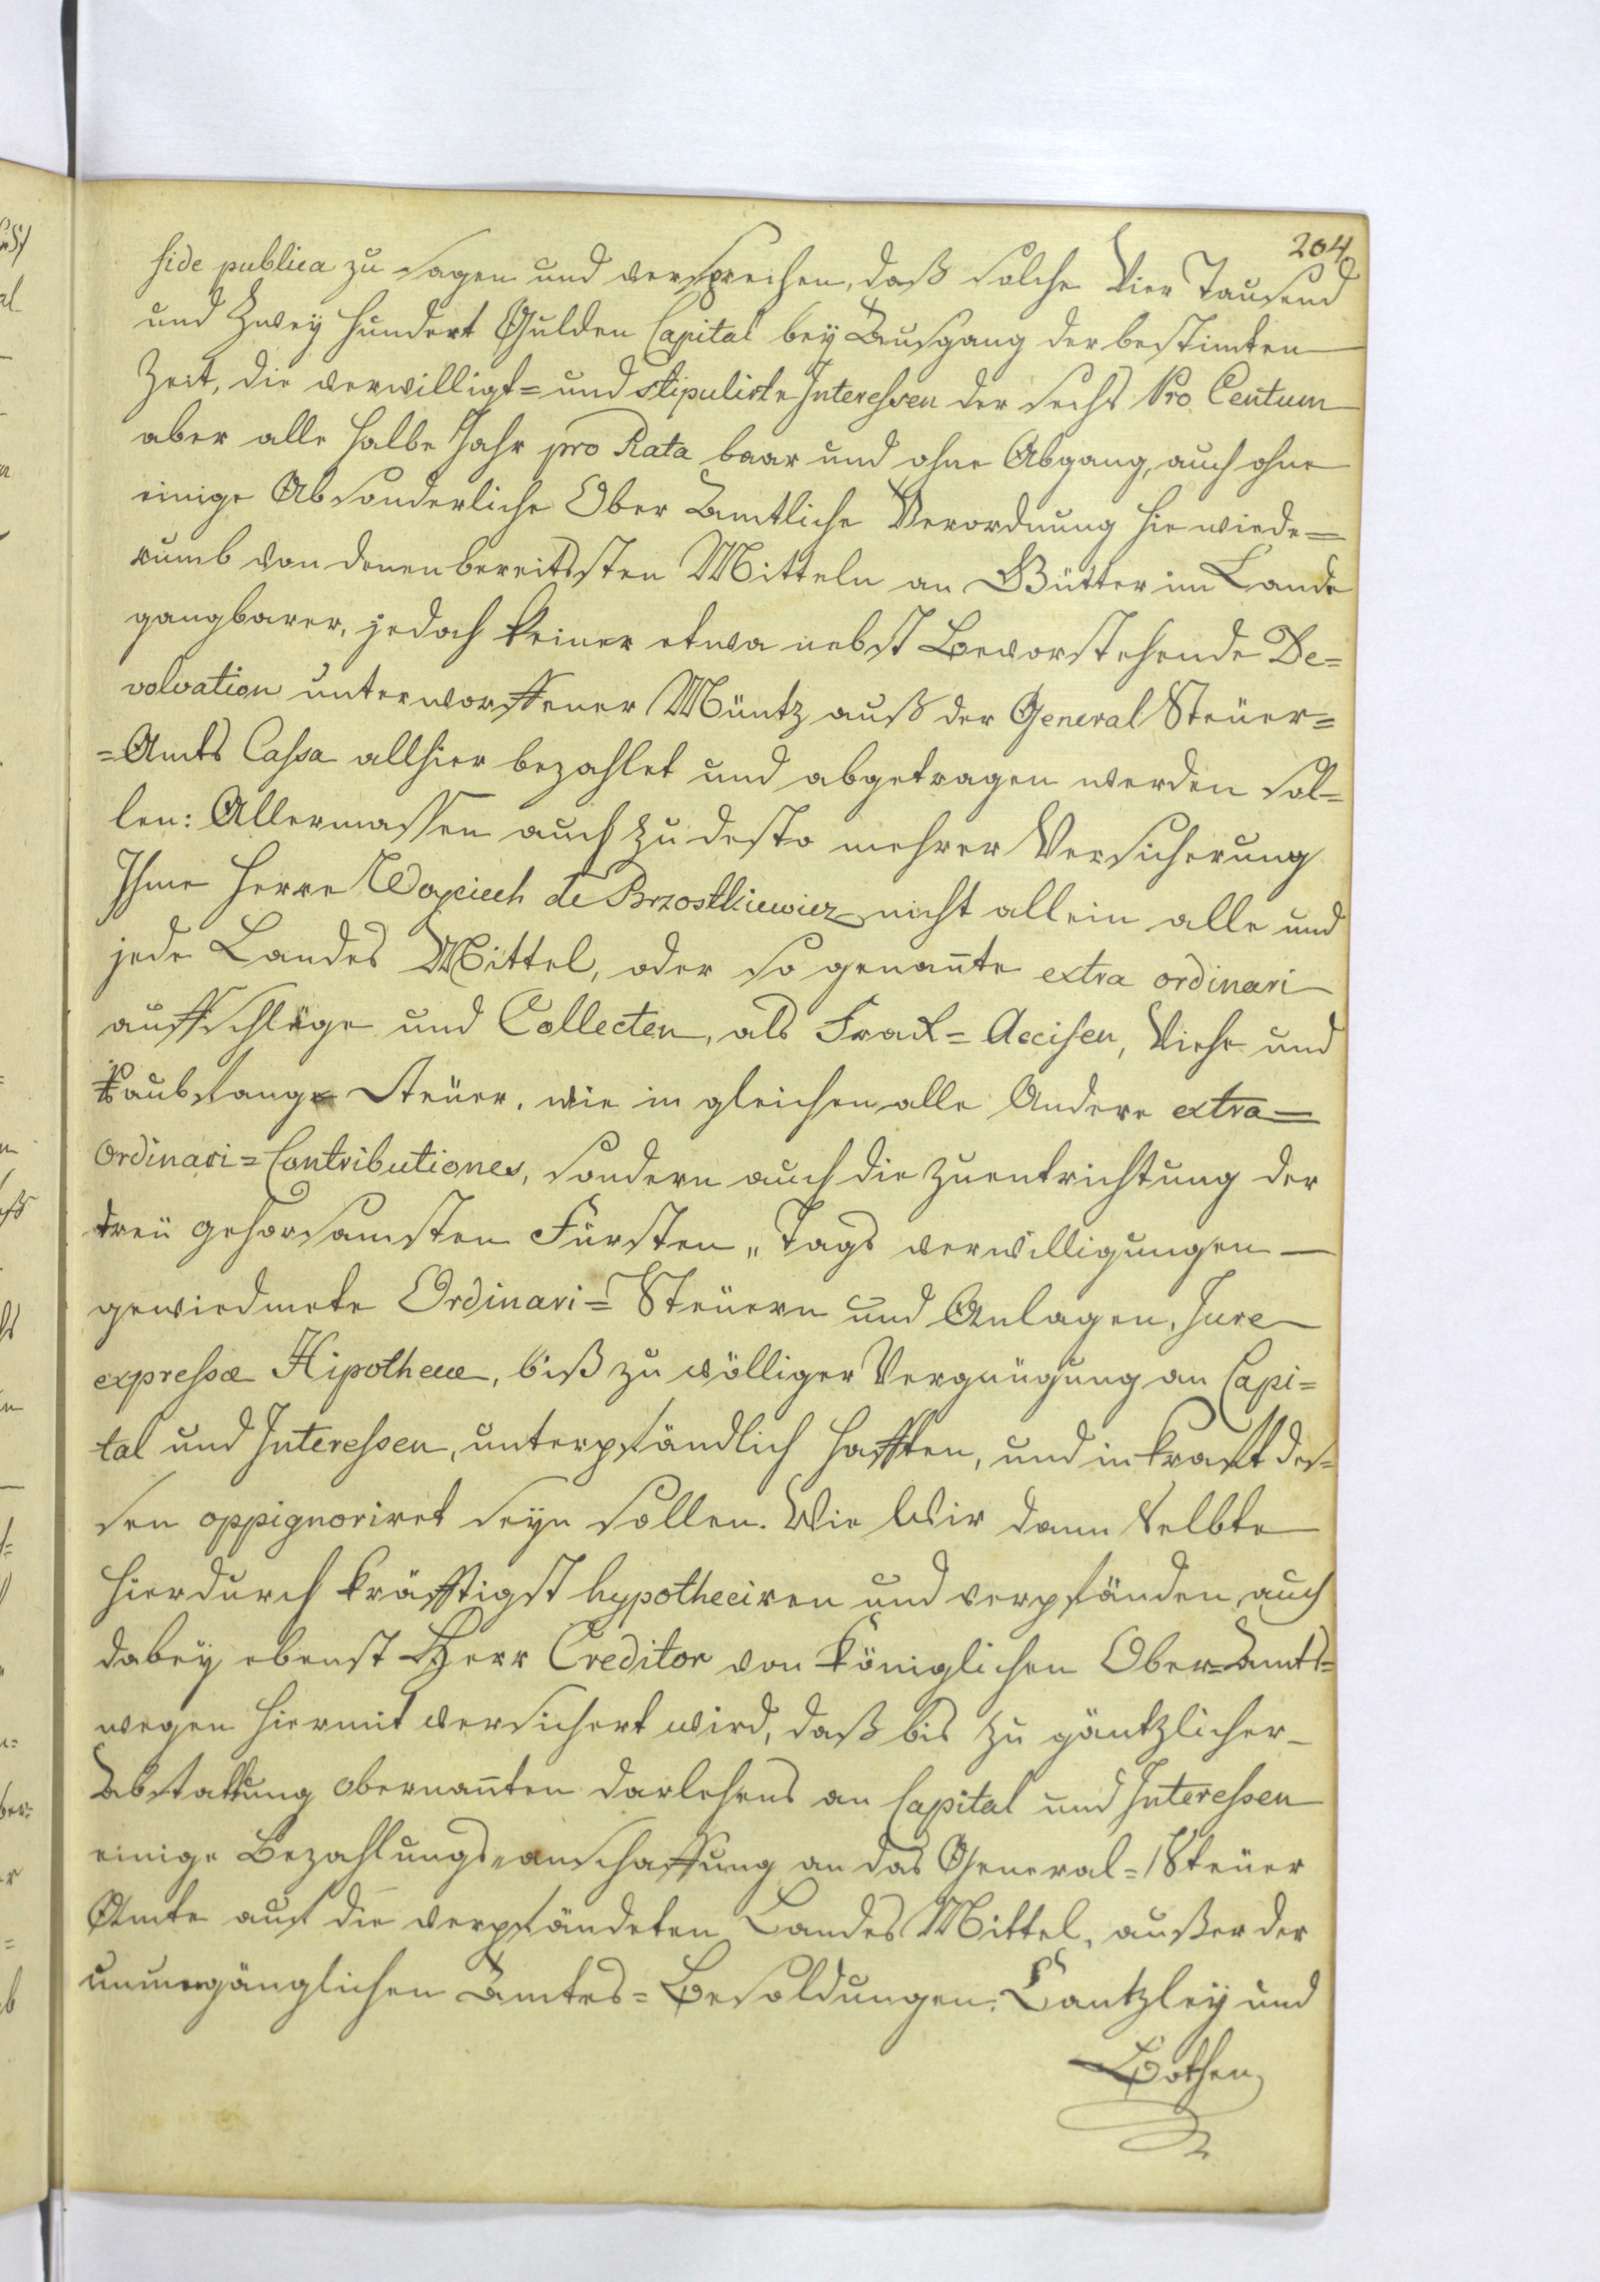 204
fide publica zu sagen und versprechen, daß solche Vier Tausend
und Zwey hundert Gulden Capital bey Ausgang der bestimten
Zeit, die verwilligt= und stipulirte Interessen der sechs Pro Centum
aber alle halbe Jahr pro Rata baar und ohne Abgang, auch ohne
einige Absonderliche Ober Amtliche Verordnung hie wiede=
rumb von denen bereitsten Mitteln an Gütter im Lande
gangbarer, jedoch keiner etwa nebst Bevorstehende De=
volvation unterworffener Müntz auß der General Steüer=
=Amts Cassa allhier bezahlet und abgetragen werden sol=
len: Allermassen auch zu desto mehrer Versicherung
Ihme Herrn Woyciech de Brzostkiewicz nicht allein alle und
jede Landes Mittel, oder so genañte extra ordinari
auffschläge und Collecten, als Accisen, Viehe und
Steüer, wie in gleichen alle Andere extra=
Ordinari=Contributiones, sondern auch die zuentrichtung der
treü gehorsamsten Fürsten„Tags verwilligungen
gewiedmete Ordinari=Steüern und Anlagen, Jure
expressæ Hipothecæ, biß zu völliger Vergnügung an Capi=
tal und Interessen, unterpfändlich hafften, und in krafft des=
sen oppignoriret seyn sollen. Wie Wir dann Selbte
hierdurch kräfftigst hypotheciren und verpfänden, auch
dabeÿ ebenst Herr Creditor von Königlichen Ober=Amts=
wegen hiermit versichert wird, daß bis zu gäntzlicher
Abstattung obernañten darlehens an Capital und Interessen
einige Bezahlungs=anschaffung an das General=Steüer
Amte auf die verpfändeten Landes Mittel, außer der
unumgänglichen Amtes=Besoldungen, Cantzleÿ und
Bothen